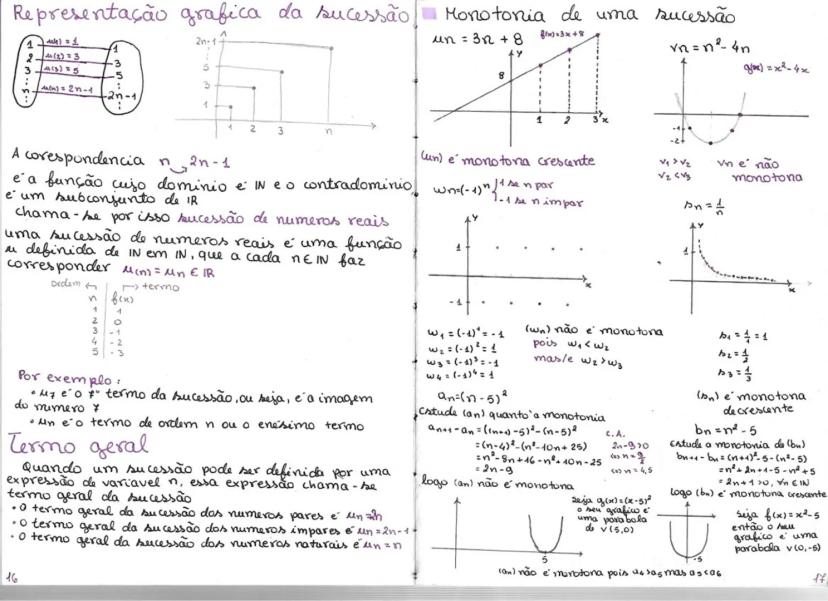 Representação grafica da sucessão
1 u(1) = 1 1
2 u(2) = 3 3
3 u(3) = 5 5
n u(n) = 2n-1 2n-1
2n-1
5
3
1
1 2 3 n
A corespondencia n 2n-1
e a função cujo dominio é IN e o contradominio
é um subconjunto de IR
chama-se por isso sucessão de numeros reais
uma sucessão de numeros reais é uma função
u definida de IN em IN, que a cada n ∈ IN faz
corresponder u(n) = un ∈ IR
Ordem ← → termo
n f(x)
1 1
2 0
3 -1
4 -2
5 -3
Por exemplo:
• u7 é o 7º termo da sucessão, ou seja, é a imagem
do numero 7
• un é o termo de ordem n ou o enésimo termo
Termo geral
Quando um sucessão pode ser definida por uma
expressão da variavel n, essa expressão chama-se
termo geral da sucessão
• O termo geral da sucessão dos numeros pares é un=2n
• O termo geral da sucessão dos numeros impares é un=2n-1
• O termo geral da sucessão dos numeros naturais é un=n
16
Monotonia de uma sucessão
un = 3n + 8
f(x)=3x+8
y
8
1 2 3 x
(un) é monotona crescente
vn = n² - 4n
g(x) = x² - 4x
-1
-2
v1 > v2 vn é não
v2 < v3 monotona
wn=(-1)ⁿ { 1 se n par
-1 se n impar
y
1
-1
x
w1 = (-1)¹ = -1
w2 = (-1)² = 1
w3 = (-1)³ = -1
w4 = (-1)⁴ = 1
(wn) não é monotona
pois w1 < w2
mas/e w2 > w3
sn = 1/n
y
1
x
s1 = 1/1 = 1
s2 = 1/2
s3 = 1/3
(sn) é monotona
decrescente
an=(n-5)²
Estude (an) quanto à monotonia
an+1 - an = ((n+1)-5)² - (n-5)²
= (n-4)² - (n²-10n+25)
= n²-8n+16-n²+10n-25
= 2n-9
C.A.
2n-9>0
(=) n = 9/2
(=) n = 4,5
logo (an) não é monotona
seja g(x)=(x-5)²
o seu gráfico é
uma parabola
de v(5,0)
5
(an) não é monotona pois a4 > a5 mas a5 < a6
bn = n² - 5
Estude a monotonia de (bn)
bn+1 - bn = (n+1)² - 5 - (n²-5)
= n²+2n+1-5-n²+5
= 2n+1 > 0, ∀n ∈ IN
logo (bn) é monotona crescente
seja f(x) = x²-5
então o seu
grafico é uma
parabola v(0,-5)
-5
17